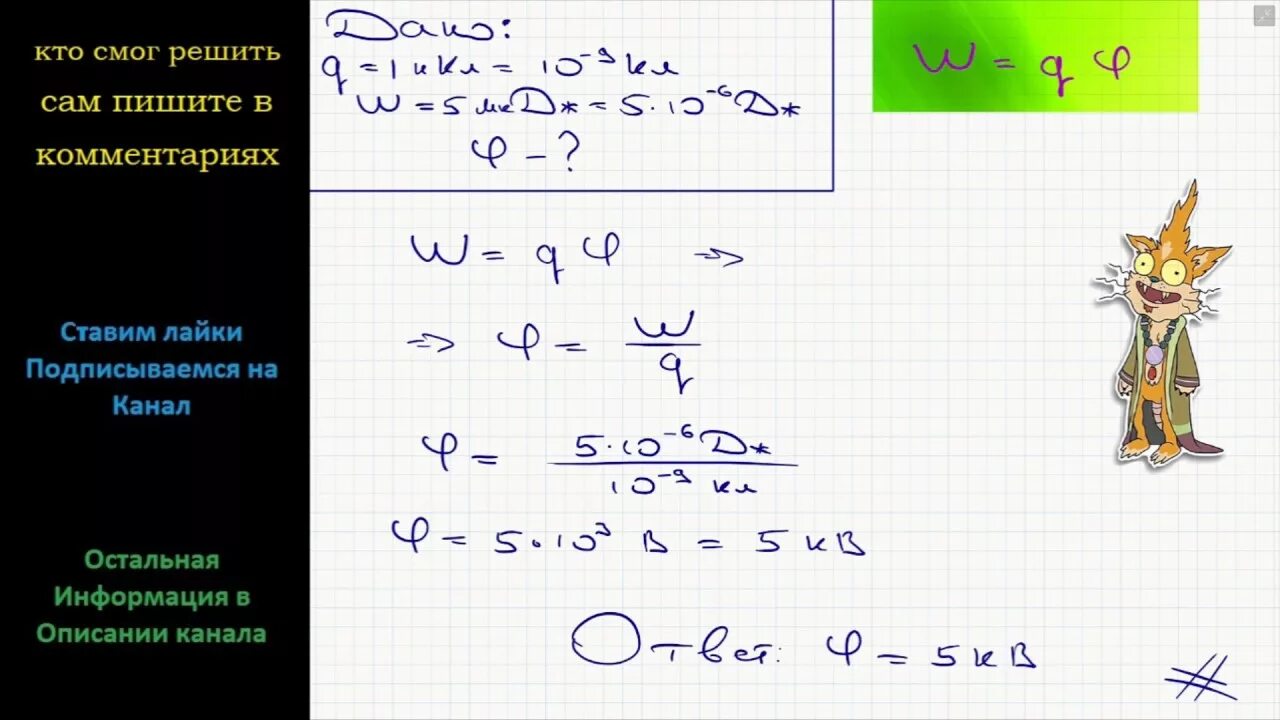 кто смог решить
сам пишите в
комментариях
Ставим лайки
Подписываемся на
Канал
Остальная
Информация в
Описании канала
Дано:
q = 1 нКл = 10⁻⁹ кл
W = 5 мкДж = 5·10⁻⁶ Дж
φ - ?
W = q φ
W = q φ =>
=> φ = W/q
φ = 5·10⁻⁶ Дж / 10⁻⁹ кл
φ = 5·10³ В = 5 кВ
Ответ: φ = 5 кВ